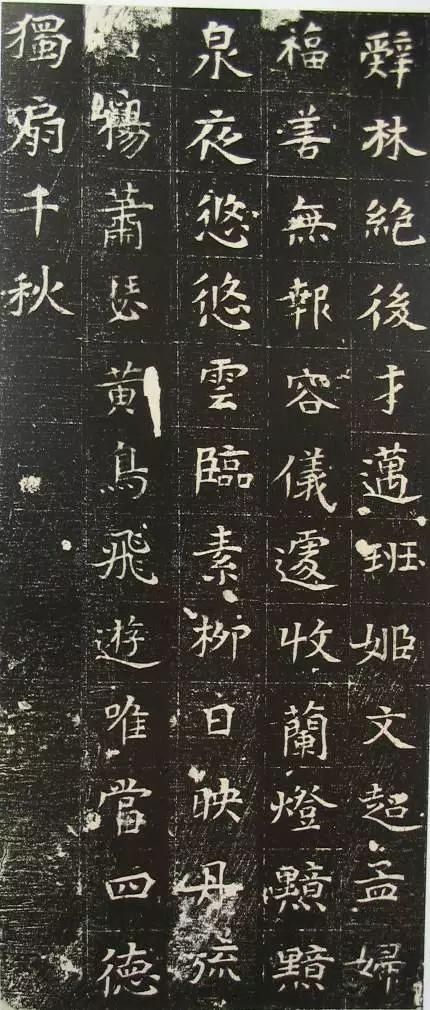 辭林絶後才邁班姬文超孟婦
福善無報容儀遽收蘭燈黯黯
泉夜悠悠雲臨素柳日映丹旒
楊蕭瑟黃鳥飛遊唯當四德
獨扇千秋